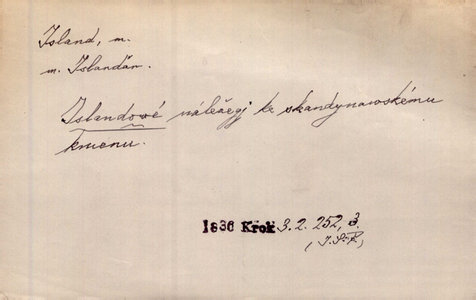 Island, m.
m. Islanďan.
Islandowé náležegj ke skandynawskému
kmenu.
1836 Krok 3.2. 252, 3.